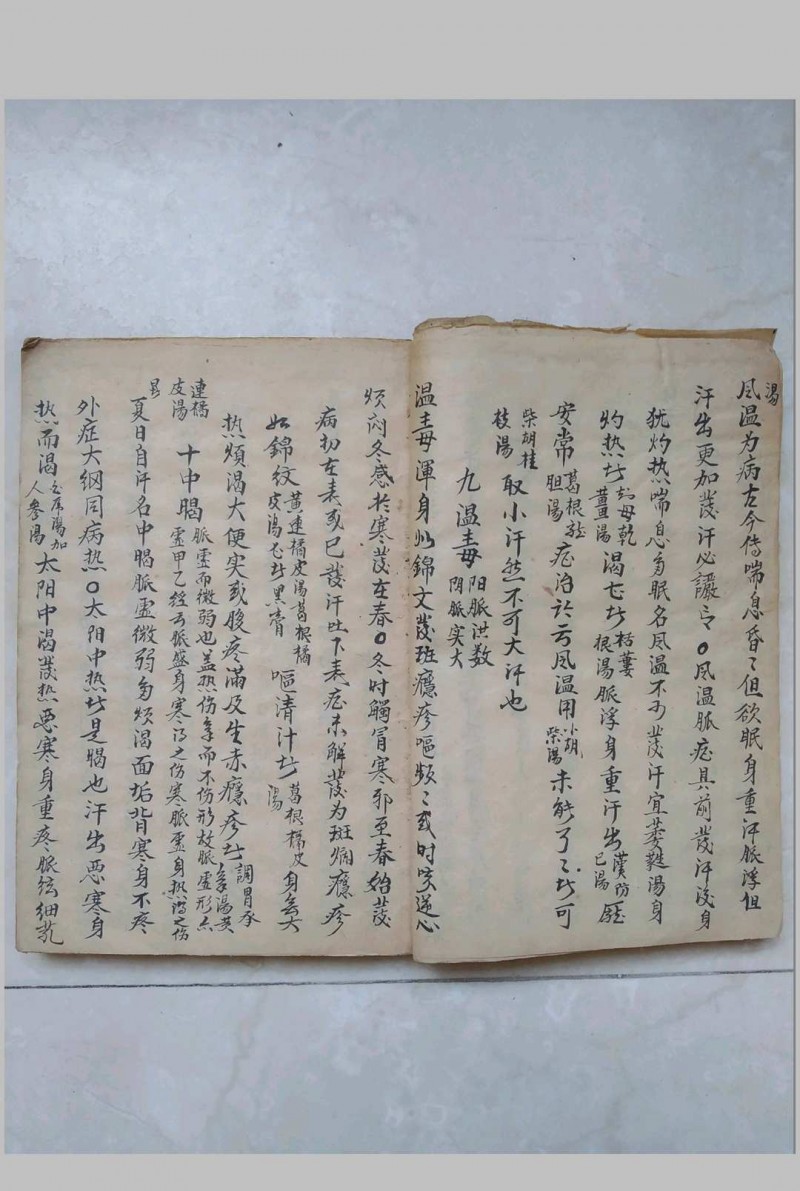 湯
风温为病古今傳喘息昏〻但欲眠身重汗脈浮但
汗出更加發汗必讝言〇风温脈症具前發汗後身
犹灼热喘息多眠名风温不可發汗宜葳蕤湯身
灼热者知母乾薑湯渴甚者栝蔞根湯脈浮身重汗出漢防已湯
安常葛根龍胆湯症治於云风温用小胡柴湯未能了〻者可
柴胡桂枝湯取小汗然不可大汗也
九温毒陽脈洪数陰脈实大
温毒渾身似錦文發斑癮疹嘔頻〻或时咳逆心
烦闷冬感於寒發在春〇冬时觸冒寒邪至春始發
病初在表或已發汗吐下表症未解發为斑烂癮疹
如錦纹黄連橘皮湯甚者黑膏嘔清汁者葛根橘皮湯身無大
热煩渴大便实或腹疼满及生赤癮疹者調胃承氣湯黄
連橘皮湯十中暍脈虚而微弱也盖热伤氣而不伤形故脈虚形点虚甲乙經云脈盛身寒得之伤寒脈虚身热得之伤
暑
夏日自汗名中暍脈虚微弱多烦渴面垢背寒身不疼
外症大纲同病热〇太阳中热者是暍也汗出恶寒身
热而渴白虎湯加人參湯太阳中渴發热恶寒身重疼脈弦细芤